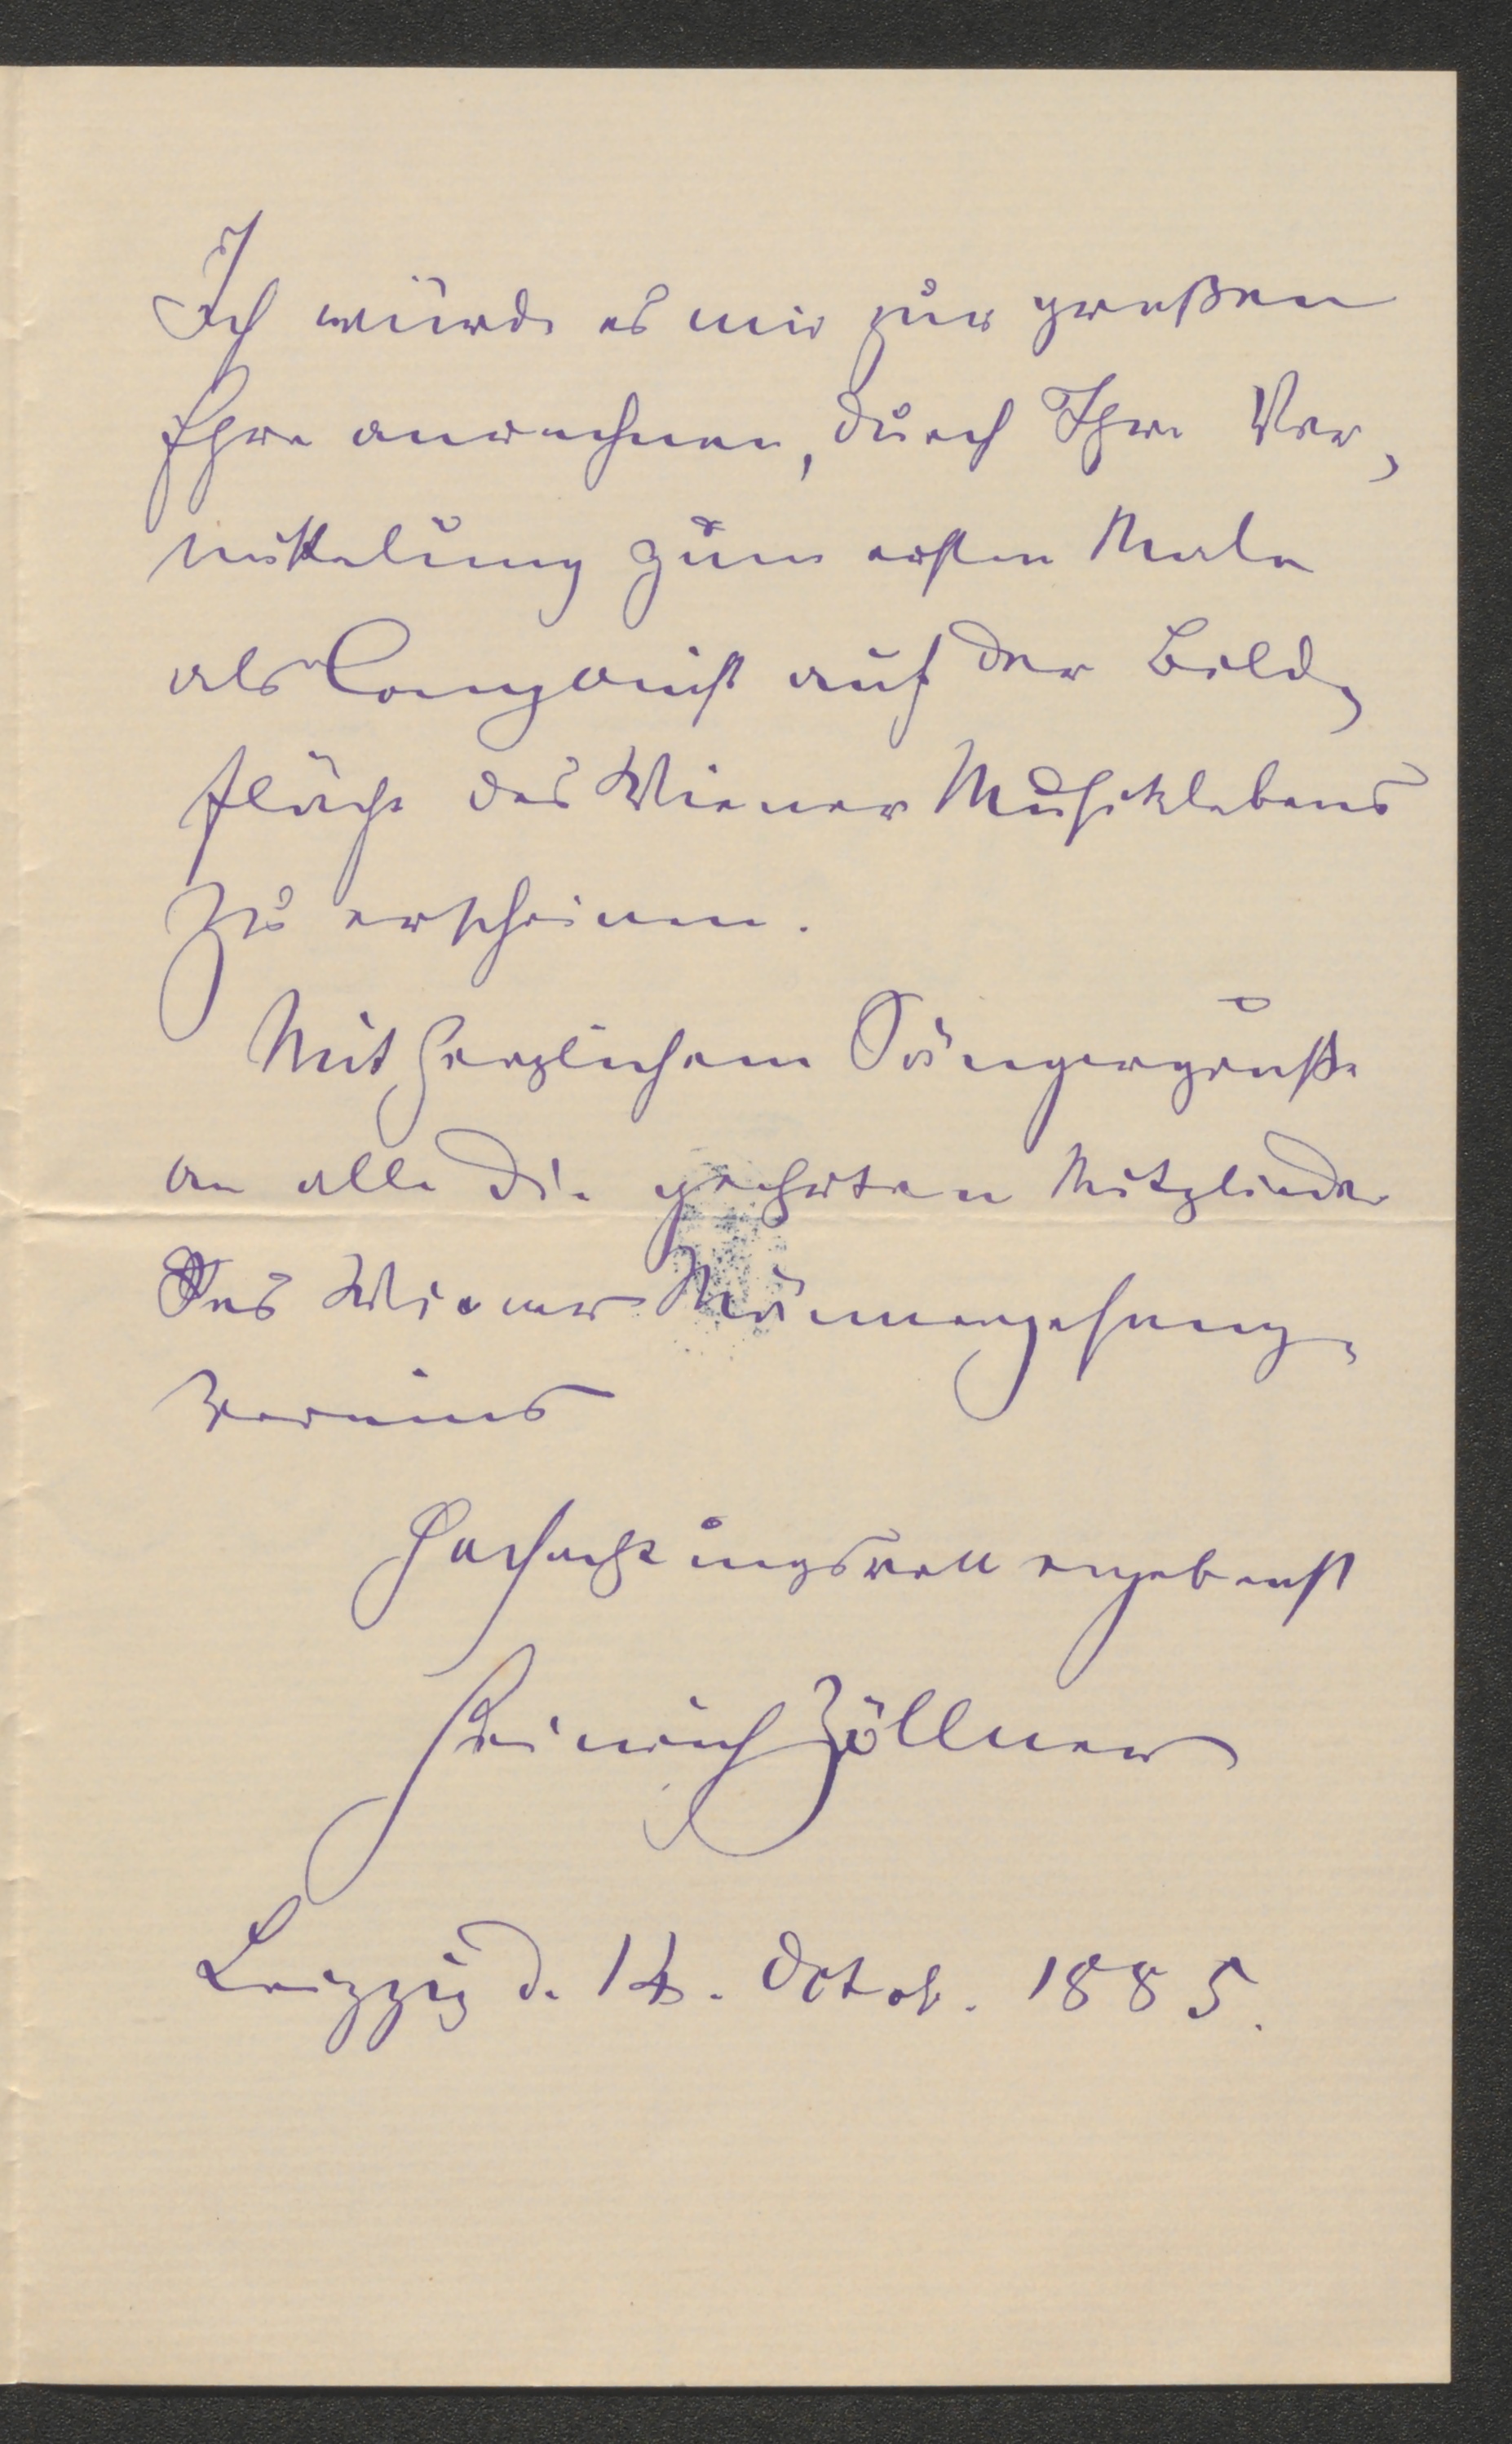 Ich würde es mir zur großen
Ehre anrechnen, durch Ihre Ver-
mittelung zum ersten Male
als Componist auf der Bild-
fläche des Wiener Musiklebens
zu erscheinen.
Mit herzlichem Sängergruße
an alle die geehrten Mitglieder
des Wiener Männergesang-
vereins
Hochachtungsvoll ergebenst
Heinrich Zöllner
Leipzig d. 14. Octob. 1885.